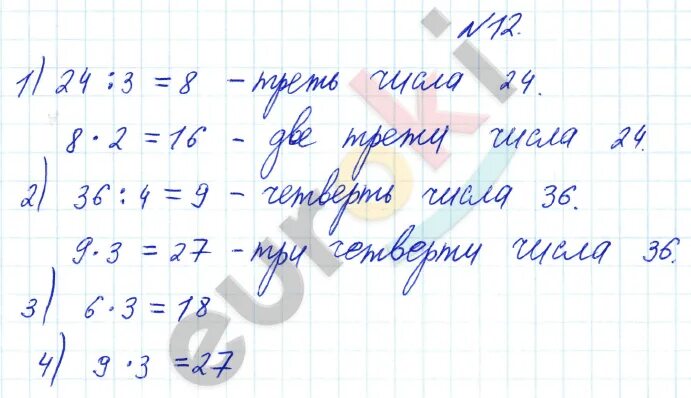 №12.
1) 24 : 3 = 8 - треть числа 24.
8 · 2 = 16 - две трети числа 24.
2) 36 : 4 = 9 - четверть числа 36.
9 · 3 = 27 - три четверти числа 36.
3) 6 · 3 = 18
4) 9 · 3 = 27
euroki